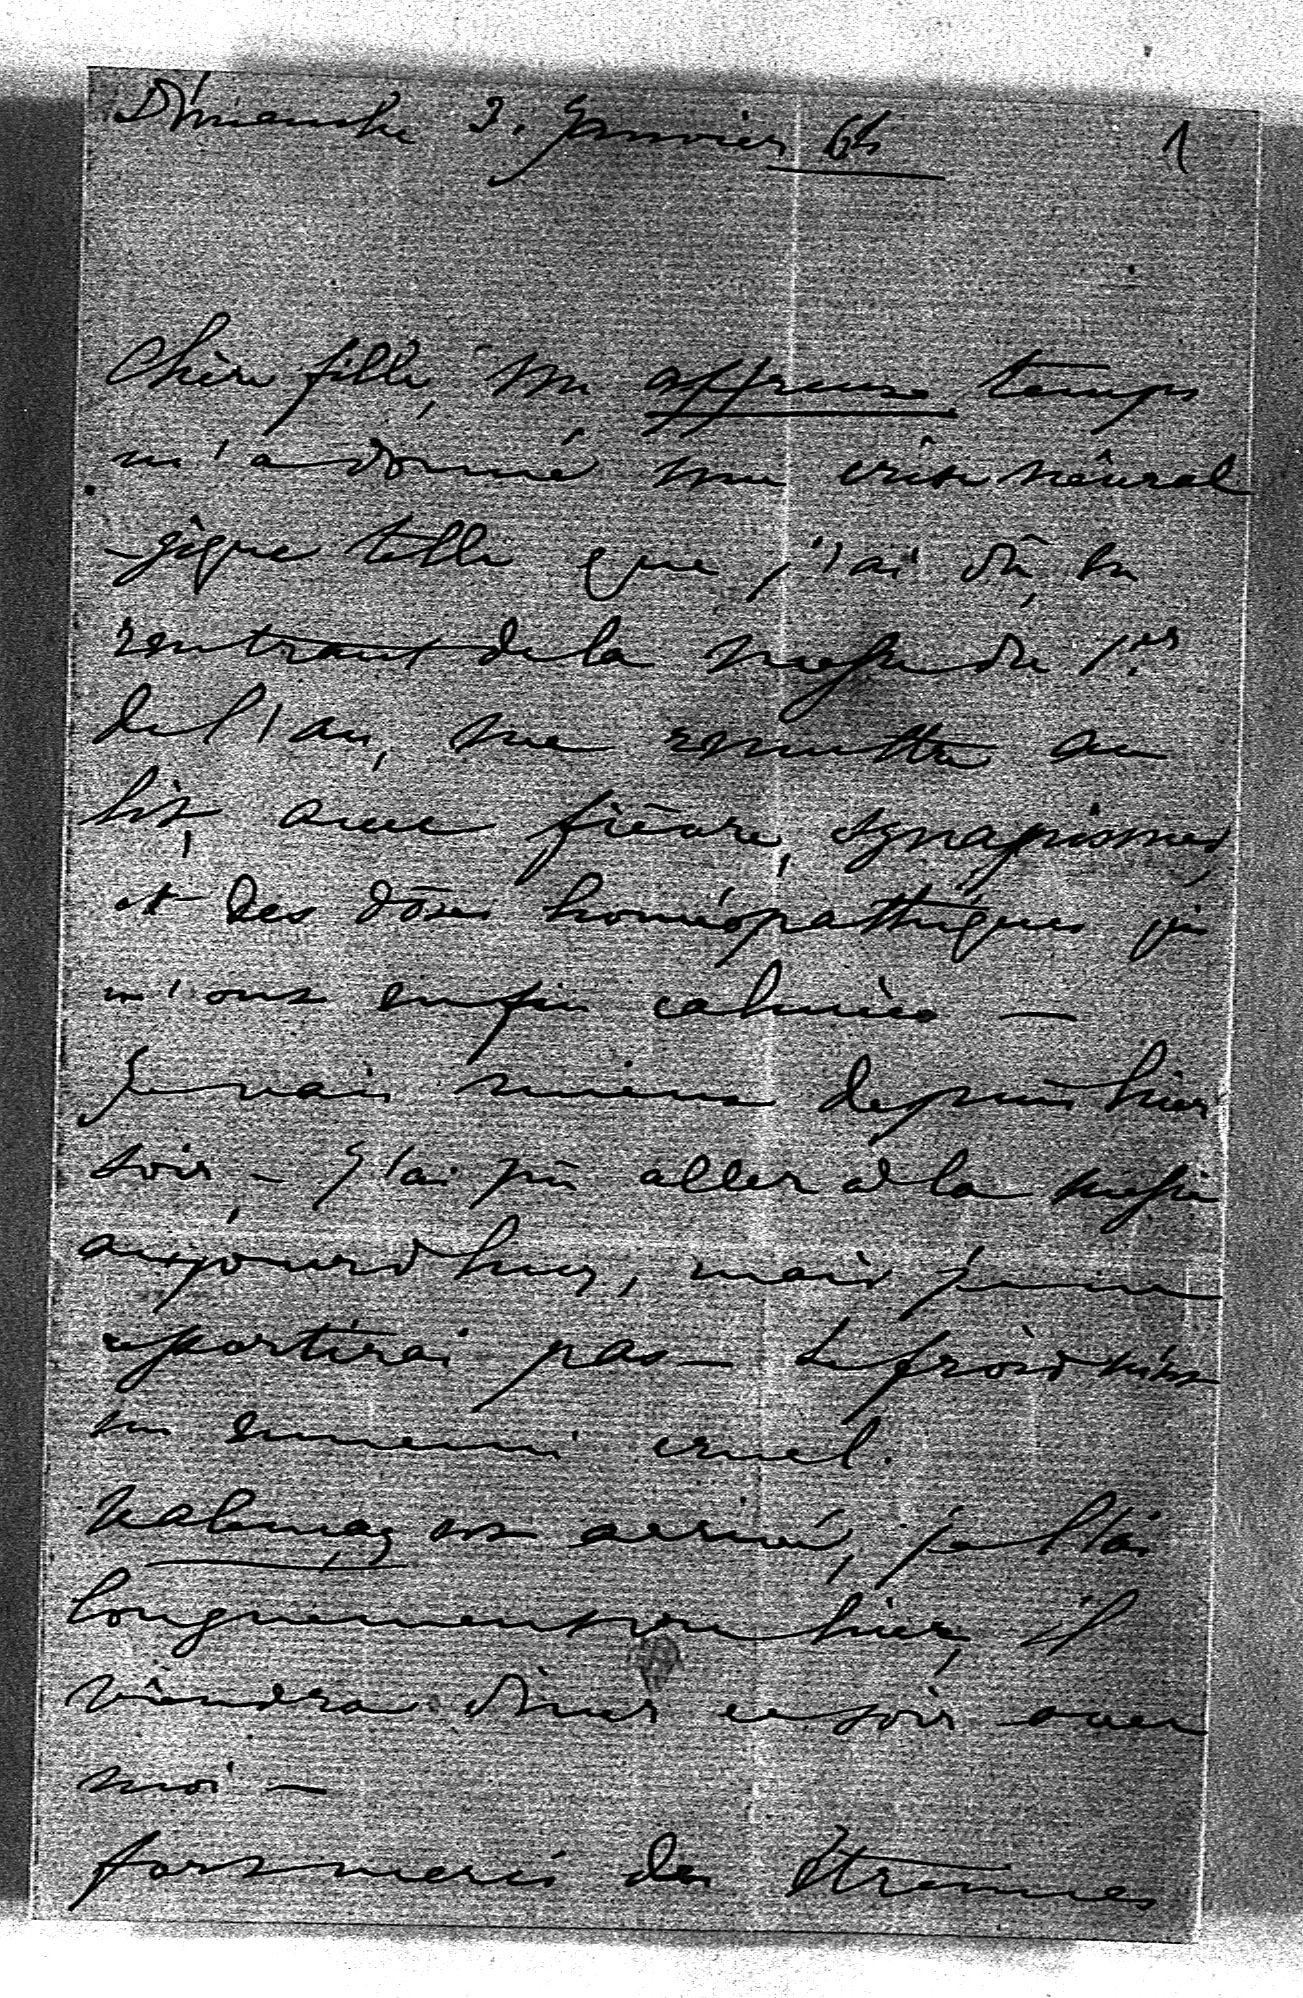 Dimanche 3. Janvier 64
1
Chère fille, un affreux temps
m'a donné une crise névral
-gique telle que j'ai dû, en
rentrant de la messe du 1.er
de l'an, me remettre au
lit, avec fièvre, synapismes,
et des doses homéopathiques qui
m'ont enfin calmées —
Je vais mieux depuis hier
soir, — J'ai pû aller à la messe
aujourd'hui, mais je ne
ressortirai pas — Le froid m'est
un ennemi cruel.
est arrivé, je l'ai
longuement vu hier, il
viendra diner ce soir avec
moi —
fort merci des étrennes